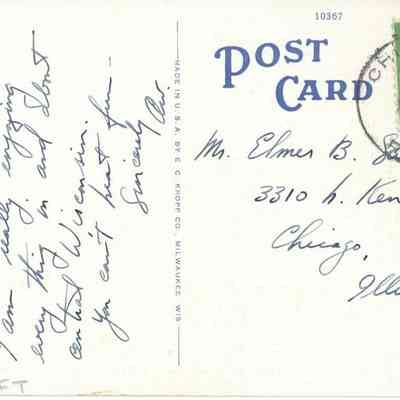 10367
POST
CARD
MADE IN U.S.A. BY E. C. KROPP CO., MILWAUKEE, WIS.
I am really enjoying
every thing in and about
central Wisconsin.
You can't beat fun –
Sincerely
Mr. Elmer B.
3310 N. Ken
Chicago,
Illi
CH
FT